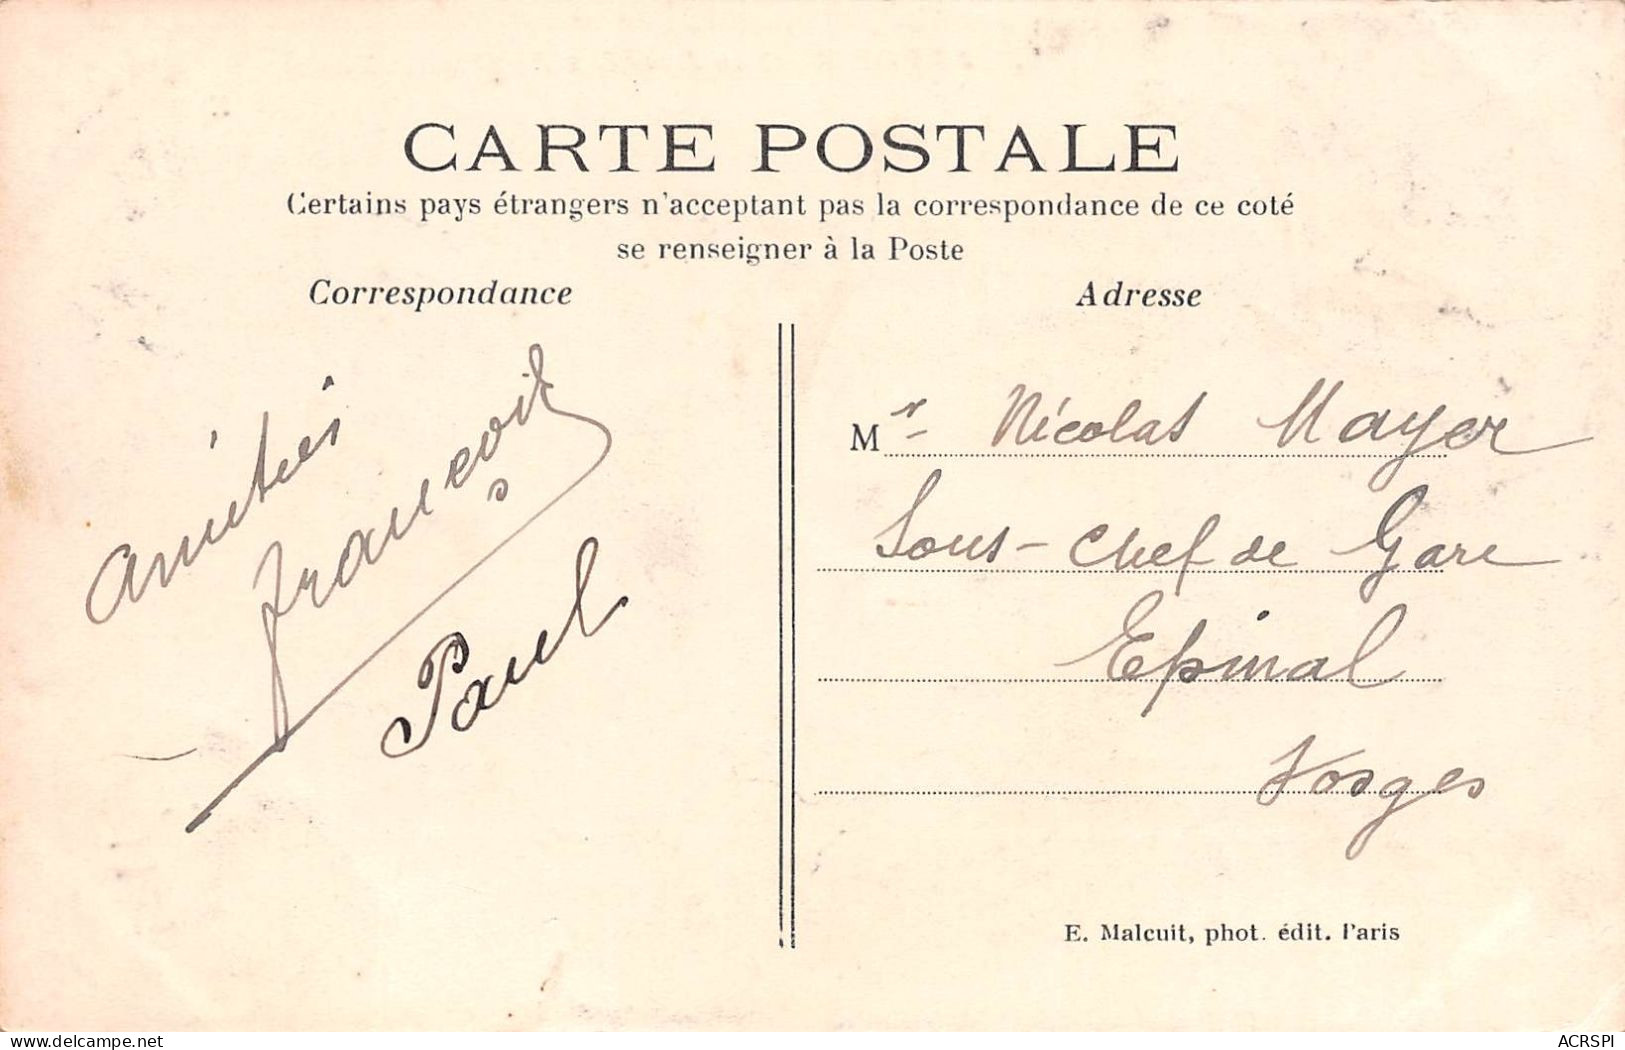 CARTE POSTALE
Certains pays étrangers n'acceptant pas la correspondance de ce coté
se renseigner à la Poste
Correspondance
Adresse
amitiés
françois
Paul
Mr Nicolas Mayer
Sous-chef de Gare
Epinal
Vosges
E. Malcuit, phot. édit. Paris
delcampe.net
ACRSPI